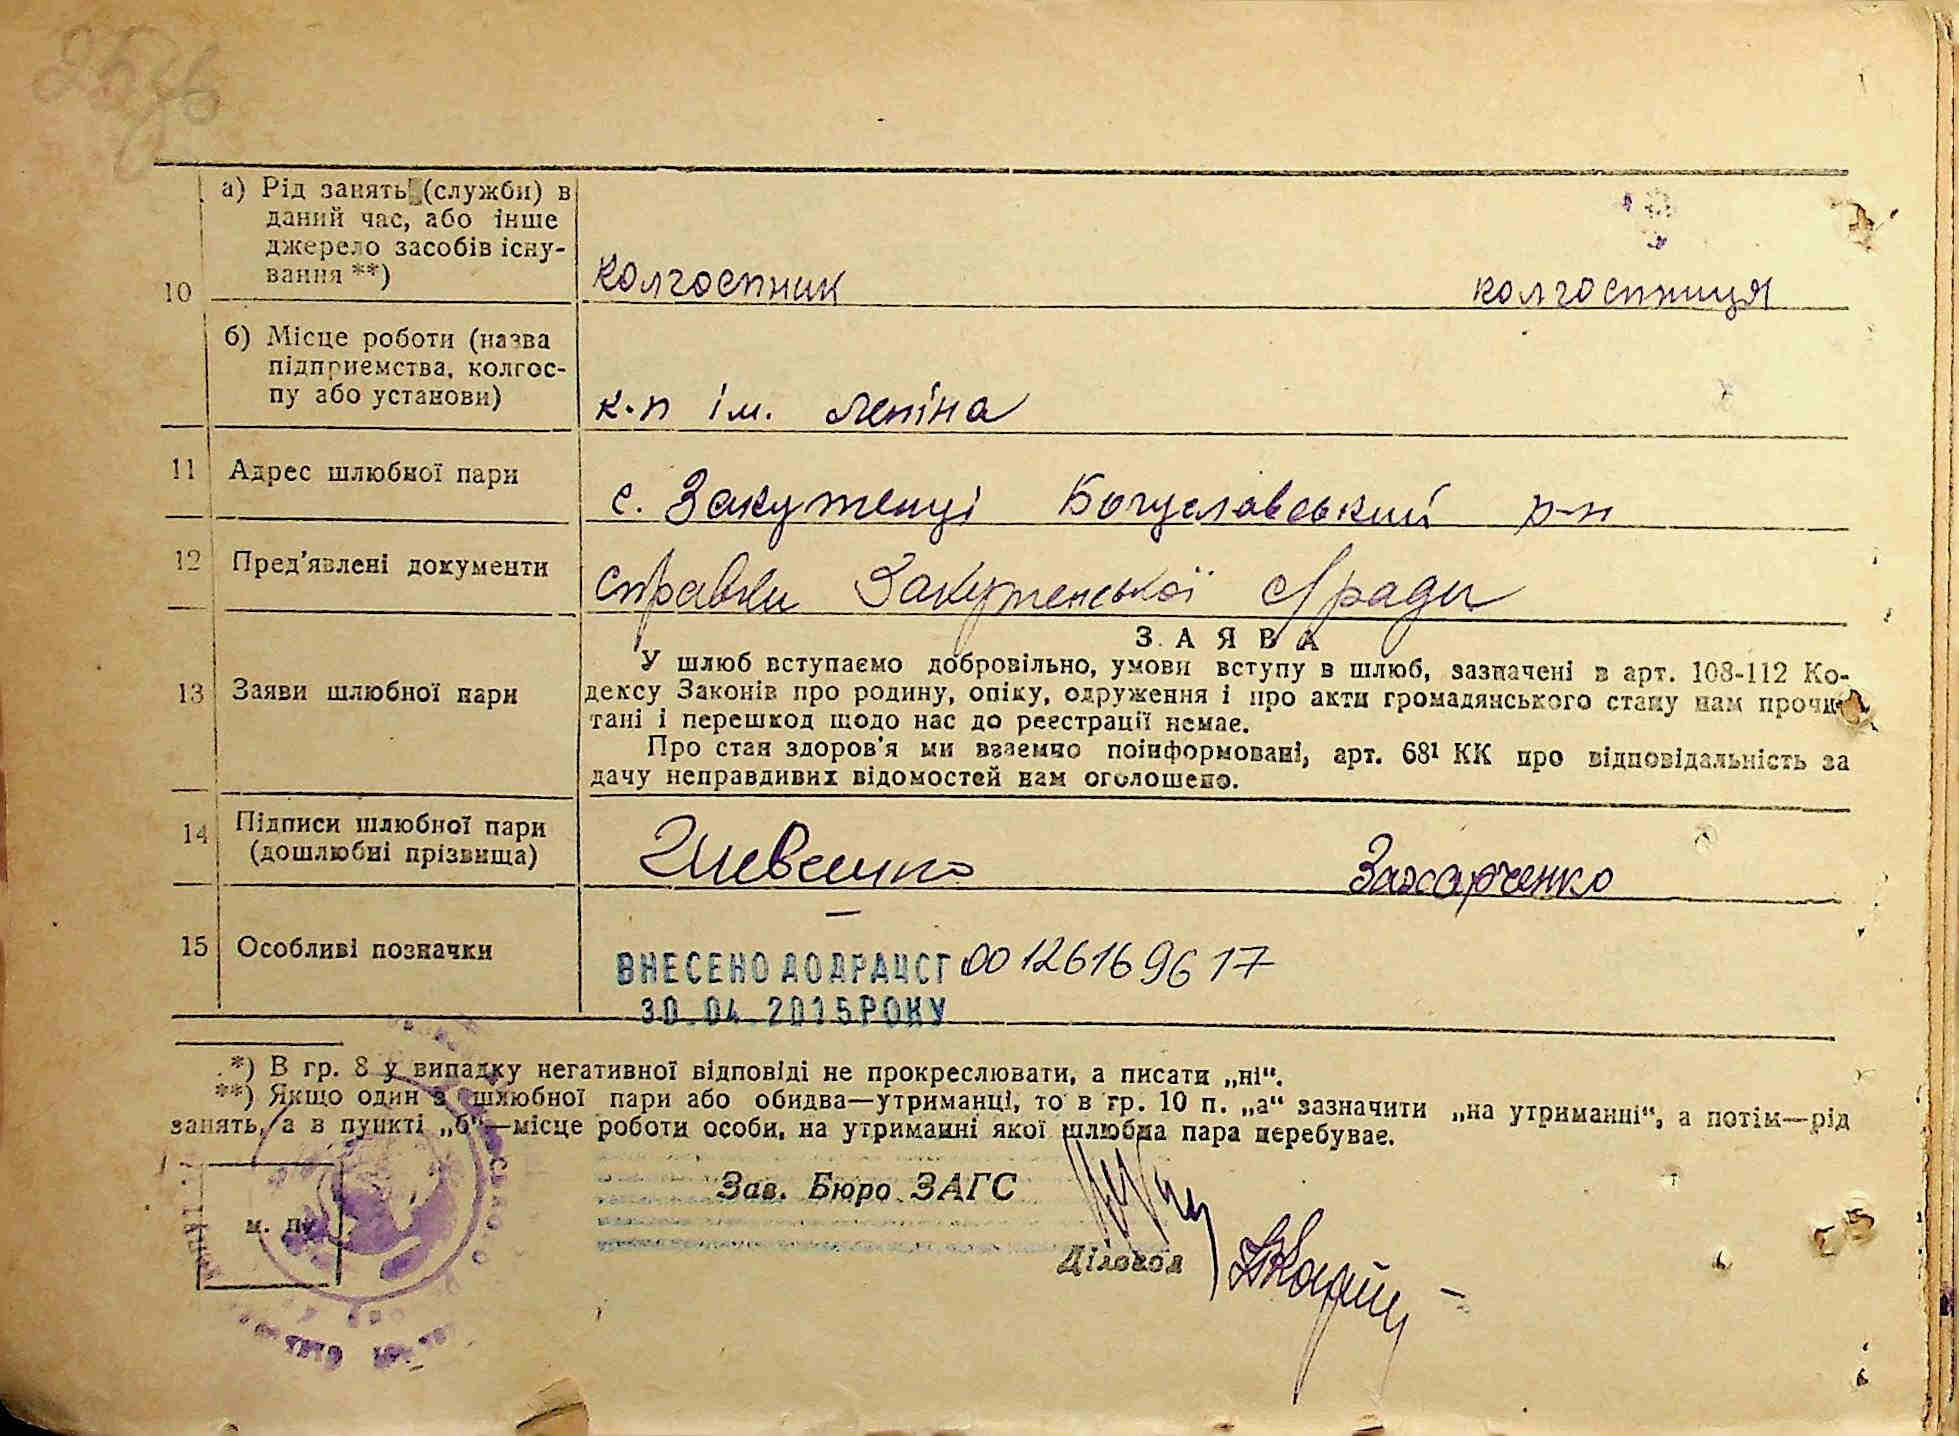 10
а) Рід занять (служби) в
даний час, або інше
джерело засобів існу-
вання **)
колгоспник колгоспниця
б) Місце роботи (назва
підприємства, колгос-
пу або установи)
к-п ім. Леніна
11 Адрес шлюбної пари
с. Закутенці Богуславський р-н
12 Пред'явлені документи
справки Закутенської с/ради
13 Заяви шлюбної пари
ЗАЯВА
У шлюб вступаємо добровільно, умови вступу в шлюб, зазначені в арт. 108-112 Ко-
дексу Законів про родину, опіку, одруження і про акти громадянського стану нам прочи-
тані і перешкод щодо нас до реєстрації немає.
Про стан здоров'я ми взаємно поінформовані, арт. 68¹ КК про відповідальність за
дачу неправдивих відомостей нам оголошено.
14 Підписи шлюбної пари
(дошлюбні прізвища)
Шевченко Захарченко
15 Особливі позначки
—
ВНЕСЕНО ДО ДРАЦСГ 00126169617
30.04.2015 РОКУ
*) В гр. 8 у випадку негативної відповіді не прокреслювати, а писати „ні“.
**) Якщо один з шлюбної пари або обидва—утриманці, то в гр. 10 п. „а“ зазначити „на утриманні“, а потім—рід
занять, а в пункті „б“—місце роботи особи, на утриманні якої шлюбна пара перебуває.
Зав. Бюро ЗАГС
м. п.
Діловод